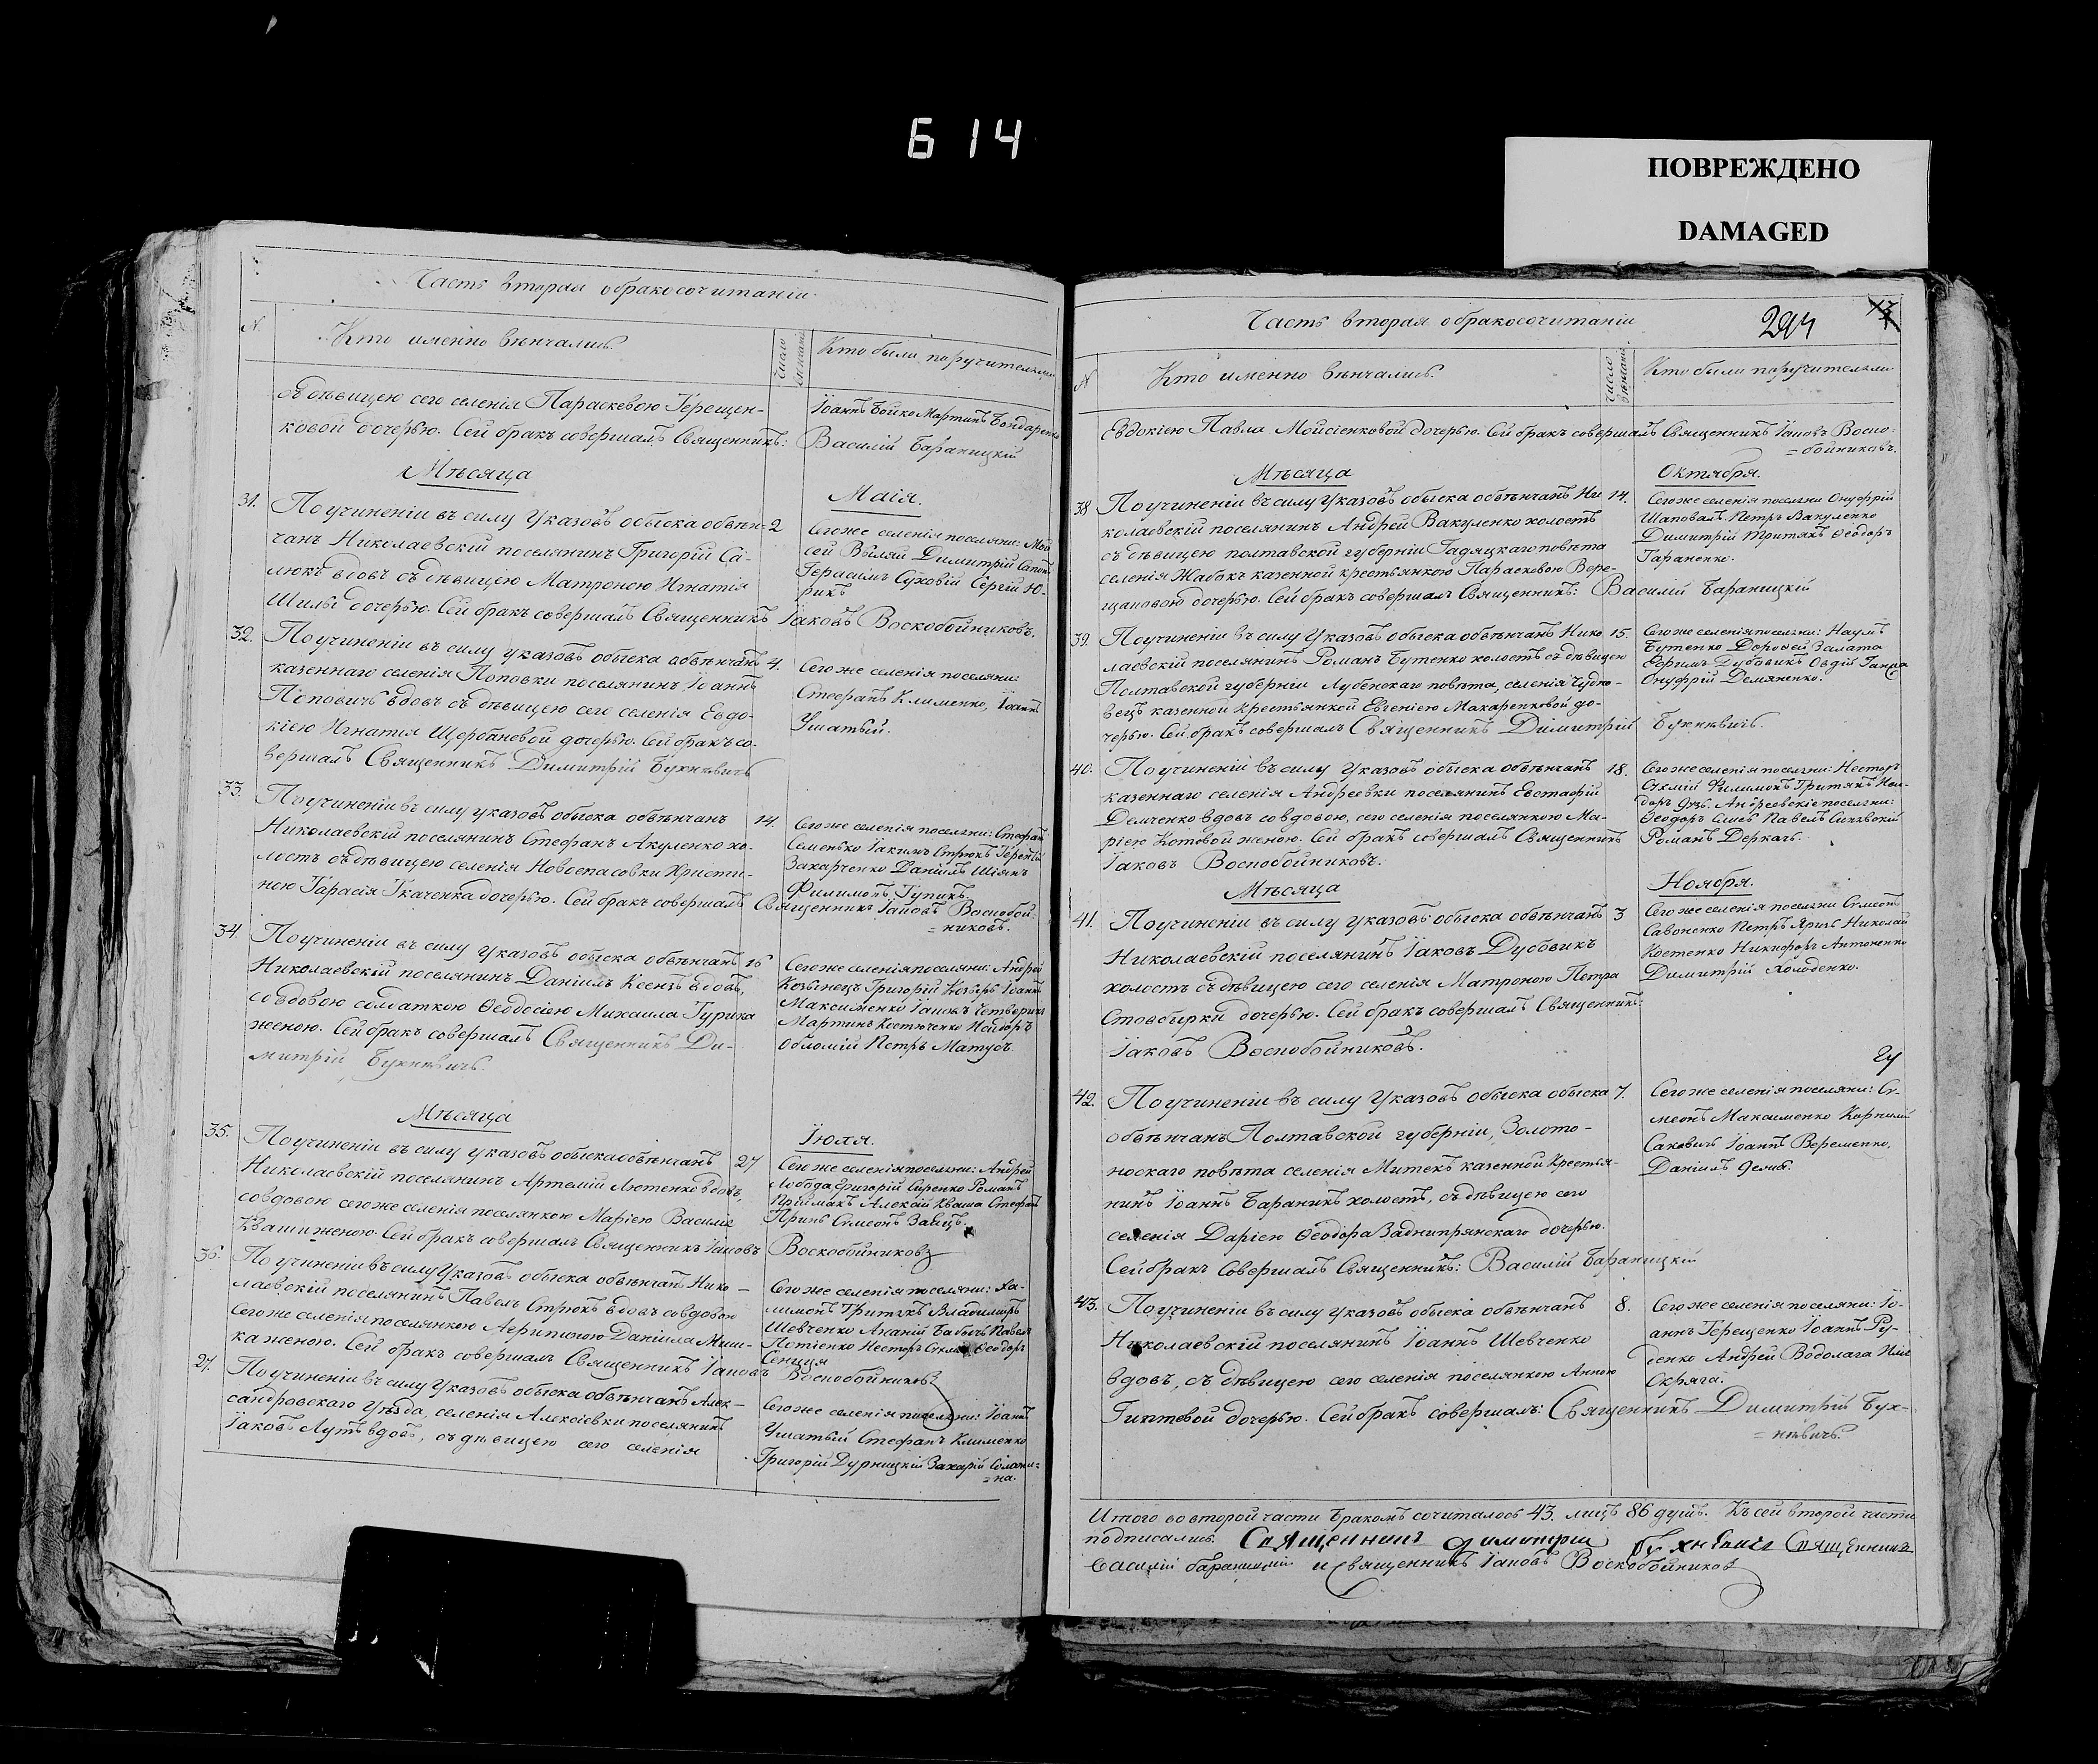 614
ПОВРЕЖДЕНО
DAMAGED
Часть вторая о бракосочитаніи
N.
Кто именно вѣнчались.
число
Кто были поручителями
дѣвицею сего селенія Параскевою Терещен-
ковой дочерью. Сей бракъ совершалъ Священникъ: Василій Бараницкій
Іоаннъ Бойко Мартинъ Бондаренко
Мѣсяца
Маія.
31. По учиненіи въ силу Указовъ обыска обвѣн- 2
чанъ Николаевскій поселянинъ Григорій Са-
люкъ вдовъ съ дѣвицею Матроною Игнатія
Шилы дочерью. Сей бракъ совершалъ Священникъ Іаковъ Воскобойниковъ.
Сего же селенія поселяни: Мои
сей Выляй Димитрій
Герасимъ Суховій Сергій Ю-
рикъ
32. По учиненіи въ силу указовъ обыска обвѣнчанъ 4.
казеннаго селенія Поповки поселянинъ Іоаннъ
Поповичъ вдовъ съ дѣвицею сего селенія Евдо-
кіею Игнатія Щербаневой дочерью. Сей бракъ со-
вершалъ Священникъ Димитрій Бухнѣвичъ
Сего же селенія поселяни:
Стефанъ Клименко, Іоаннъ
Ушатый.
33. По учиненіи въ силу указовъ обыска обвѣнчанъ 14.
Николаевскій поселянинъ Стефанъ Акуленко хо-
лостъ съ дѣвицею селенія Новоспасовки Христи-
ною Тарасія Ткаченка дочерью. Сей бракъ совершалъ Священникъ Іаковъ Воскобой-
=никовъ.
Сего же селенія поселяни: Стефанъ
Семенько Іакимъ Стрюкъ Терентій
Захарченко Даніилъ Шіянъ
Филимонъ Гупикъ.
34. По учиненіи въ силу указовъ обыска обвѣнчанъ 16
Николаевскій поселянинъ Даніилъ Ксензъ вдовъ,
со вдовою солдаткою Ѳеодосіею Михаила Гурика
женою. Сей бракъ совершалъ Священникъ Ди-
митрій Бухнѣвичъ.
Сего же селенія поселяни: Андрей
Козынецъ Григорій Козыръ Іоаннъ
Максименко Іаковъ Четверикъ
Мартинъ Костюченко Исидоръ
Обломій Петръ Матусъ.
Мѣсяца
Іюля.
35. По учиненіи въ силу указовъ обыска обвѣнчанъ 27
Николаевскій поселянинъ Артемій Лютенко вдовъ,
со вдовою сего же селенія поселянкою Маріею Василія
Кваши женою. Сей бракъ совершалъ Священникъ Іаковъ Воскобойниковъ
Сего же селенія поселяни: Андрей
Лобода Григорій Сиренко Романъ
Пріймакъ Алексій Кваша Стефанъ
Принь Сѵмеонъ Заяцъ.
36. По учиненіи въ силу Указовъ обыска обвѣнчанъ Нико-
лаевскій поселянинъ Павелъ Стрюкъ вдовъ со вдовою
сего же селенія поселянкою Агрипиною Даніила Миш-
ка женою. Сей бракъ совершалъ Священникъ Іаковъ Воскобойниковъ
Сего же селенія поселяни: Фи-
лимонъ Притыкъ Владимиръ
Шевченко Ананій Бабычъ Павелъ
Потіенко Несторъ Сухмій Ѳеодоръ
Сенция
27. По учиненіи въ силу Указовъ обыска обвѣнчанъ Алек-
сандровскаго уѣзда, селенія Алексіевки поселянинъ
Іаковъ Лутъ вдовъ, съ дѣвицею сего селенія
Сего же селенія поселяни: Іоаннъ
Ушатый Стефанъ Клименко
Григорій Дурницкій Захарій Солони-
=на.
Часть вторая о бракосочитаніи
294
N
Кто именно вѣнчались.
число
Кто были поручителями
Евдокіею Павла Мойсіенковой дочерью. Сей бракъ совершалъ Священникъ Іаковъ Воско-
=бойниковъ.
Мѣсяца
Октября.
38 По учиненіи въ силу Указовъ обыска обвѣнчанъ Ни 14.
колаевскій поселянинъ Андрей Вакуленко холостъ
съ дѣвицею полтавской губерніи Гадяцкаго повѣта
селенія Жабокъ казенной крестьянкою Параскевою Вере-
щаковою дочерью. Сей бракъ совершалъ Священникъ: Василій Бараницкій
Сего же селенія поселяни Онуфрій
Шаповалъ Петръ Вакуленко
Димитрій Притыкъ Ѳеодоръ
Тараненко.
39. По учиненіи въ силу Указовъ обыска обвѣнчанъ Нико 15.
лаевскій поселянинъ Романъ Бутенко холостъ съ дѣвицею
Полтавской губерніи Лубенскаго повѣта, селенія Чудно-
вецъ казенной крестьянкой Евгеніею Макаренковой до-
черью. Сей бракъ совершалъ Священникъ Димитрій Бухнѣвичъ.
Сего же селенія поселяни: Наумъ
Бутенко Дорофей Залата
Ефимъ Дубовикъ Овдій Ганжа
Онуфрій Демяненко.
40. По учиненіи въ силу Указовъ обыска обвѣнчанъ 18.
казеннаго селенія Андреевки поселянинъ Евстафій
Демченко вдовъ со вдовою, сего селенія поселянкою Ма-
ріею Котовой женою. Сей бракъ совершалъ Священникъ
Іаковъ Воскобойниковъ.
Сего же селенія поселяни: Несторъ
Сухмій Филимонъ Притыкъ Иси-
доръ Андреевскіе поселяни:
Ѳеодоръ Павелъ
Романъ Деркачъ.
Мѣсяца
Ноября.
41. По учиненіи въ силу Указовъ обыска обвѣнчанъ 3
Николаевскій поселянинъ Іаковъ Дубовикъ
холостъ съ дѣвицею сего селенія Матроною Петра
Стовбырки дочерью. Сей бракъ совершалъ Священникъ:
Іаковъ Воскобойниковъ.
Сего же селенія поселяни Сѵмеонъ
Савоненко Петръ Яризъ Николай
Костенко Никифоръ Антоненко
Димитрій Холоденко.
42. По учиненіи въ силу Указовъ обыска обыска 7.
обвѣнчанъ Полтавской губерніи, Золото-
носкаго повѣта селенія Митекъ казенной крестья-
нинъ Іоаннъ Бараникъ холостъ, съ дѣвицею сего
селенія Даріею Ѳеодора Заднипрянскаго дочерью.
Сей бракъ совершалъ Священникъ: Василій Бараницкій
Сего же селенія поселяни: Сѵ-
меонъ Максименко Корнилій
Саковичъ Іоаннъ Веременко,
Даніилъ Демко.
43. По учиненіи въ силу Указовъ обыска обвѣнчанъ 8.
Николаевскій поселянинъ Іоаннъ Шевченко
вдовъ, съ дѣвицею сего селенія поселянкою Анною
Гиптевой дочерью. Сей бракъ совершалъ: Священникъ Димитрій Бух-
=нѣвичъ.
Сего же селенія поселяни: Іо-
аннъ Терещенко Іоаннъ Ру-
денко Андрей Водолага Илія
Скряга.
Итого во второй части бракомъ сочиталось 43. лицъ 86 душъ. Къ сей второй части
подписались. Священникъ Димитрій Бухнѣвичъ Священникъ
Василій Бараницкій и священникъ Іаковъ Воскобойниковъ